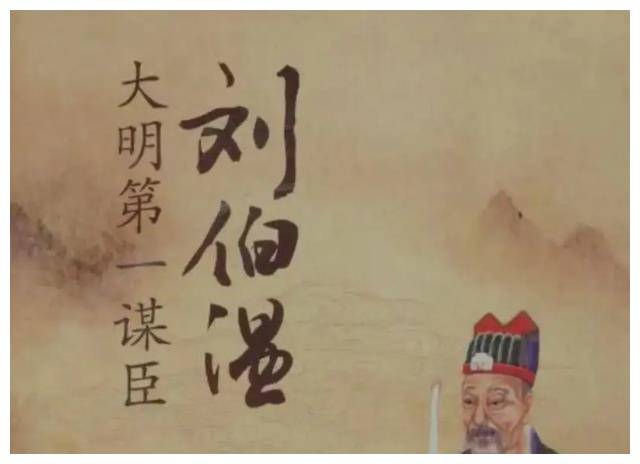 刘伯温
大明第一谋臣